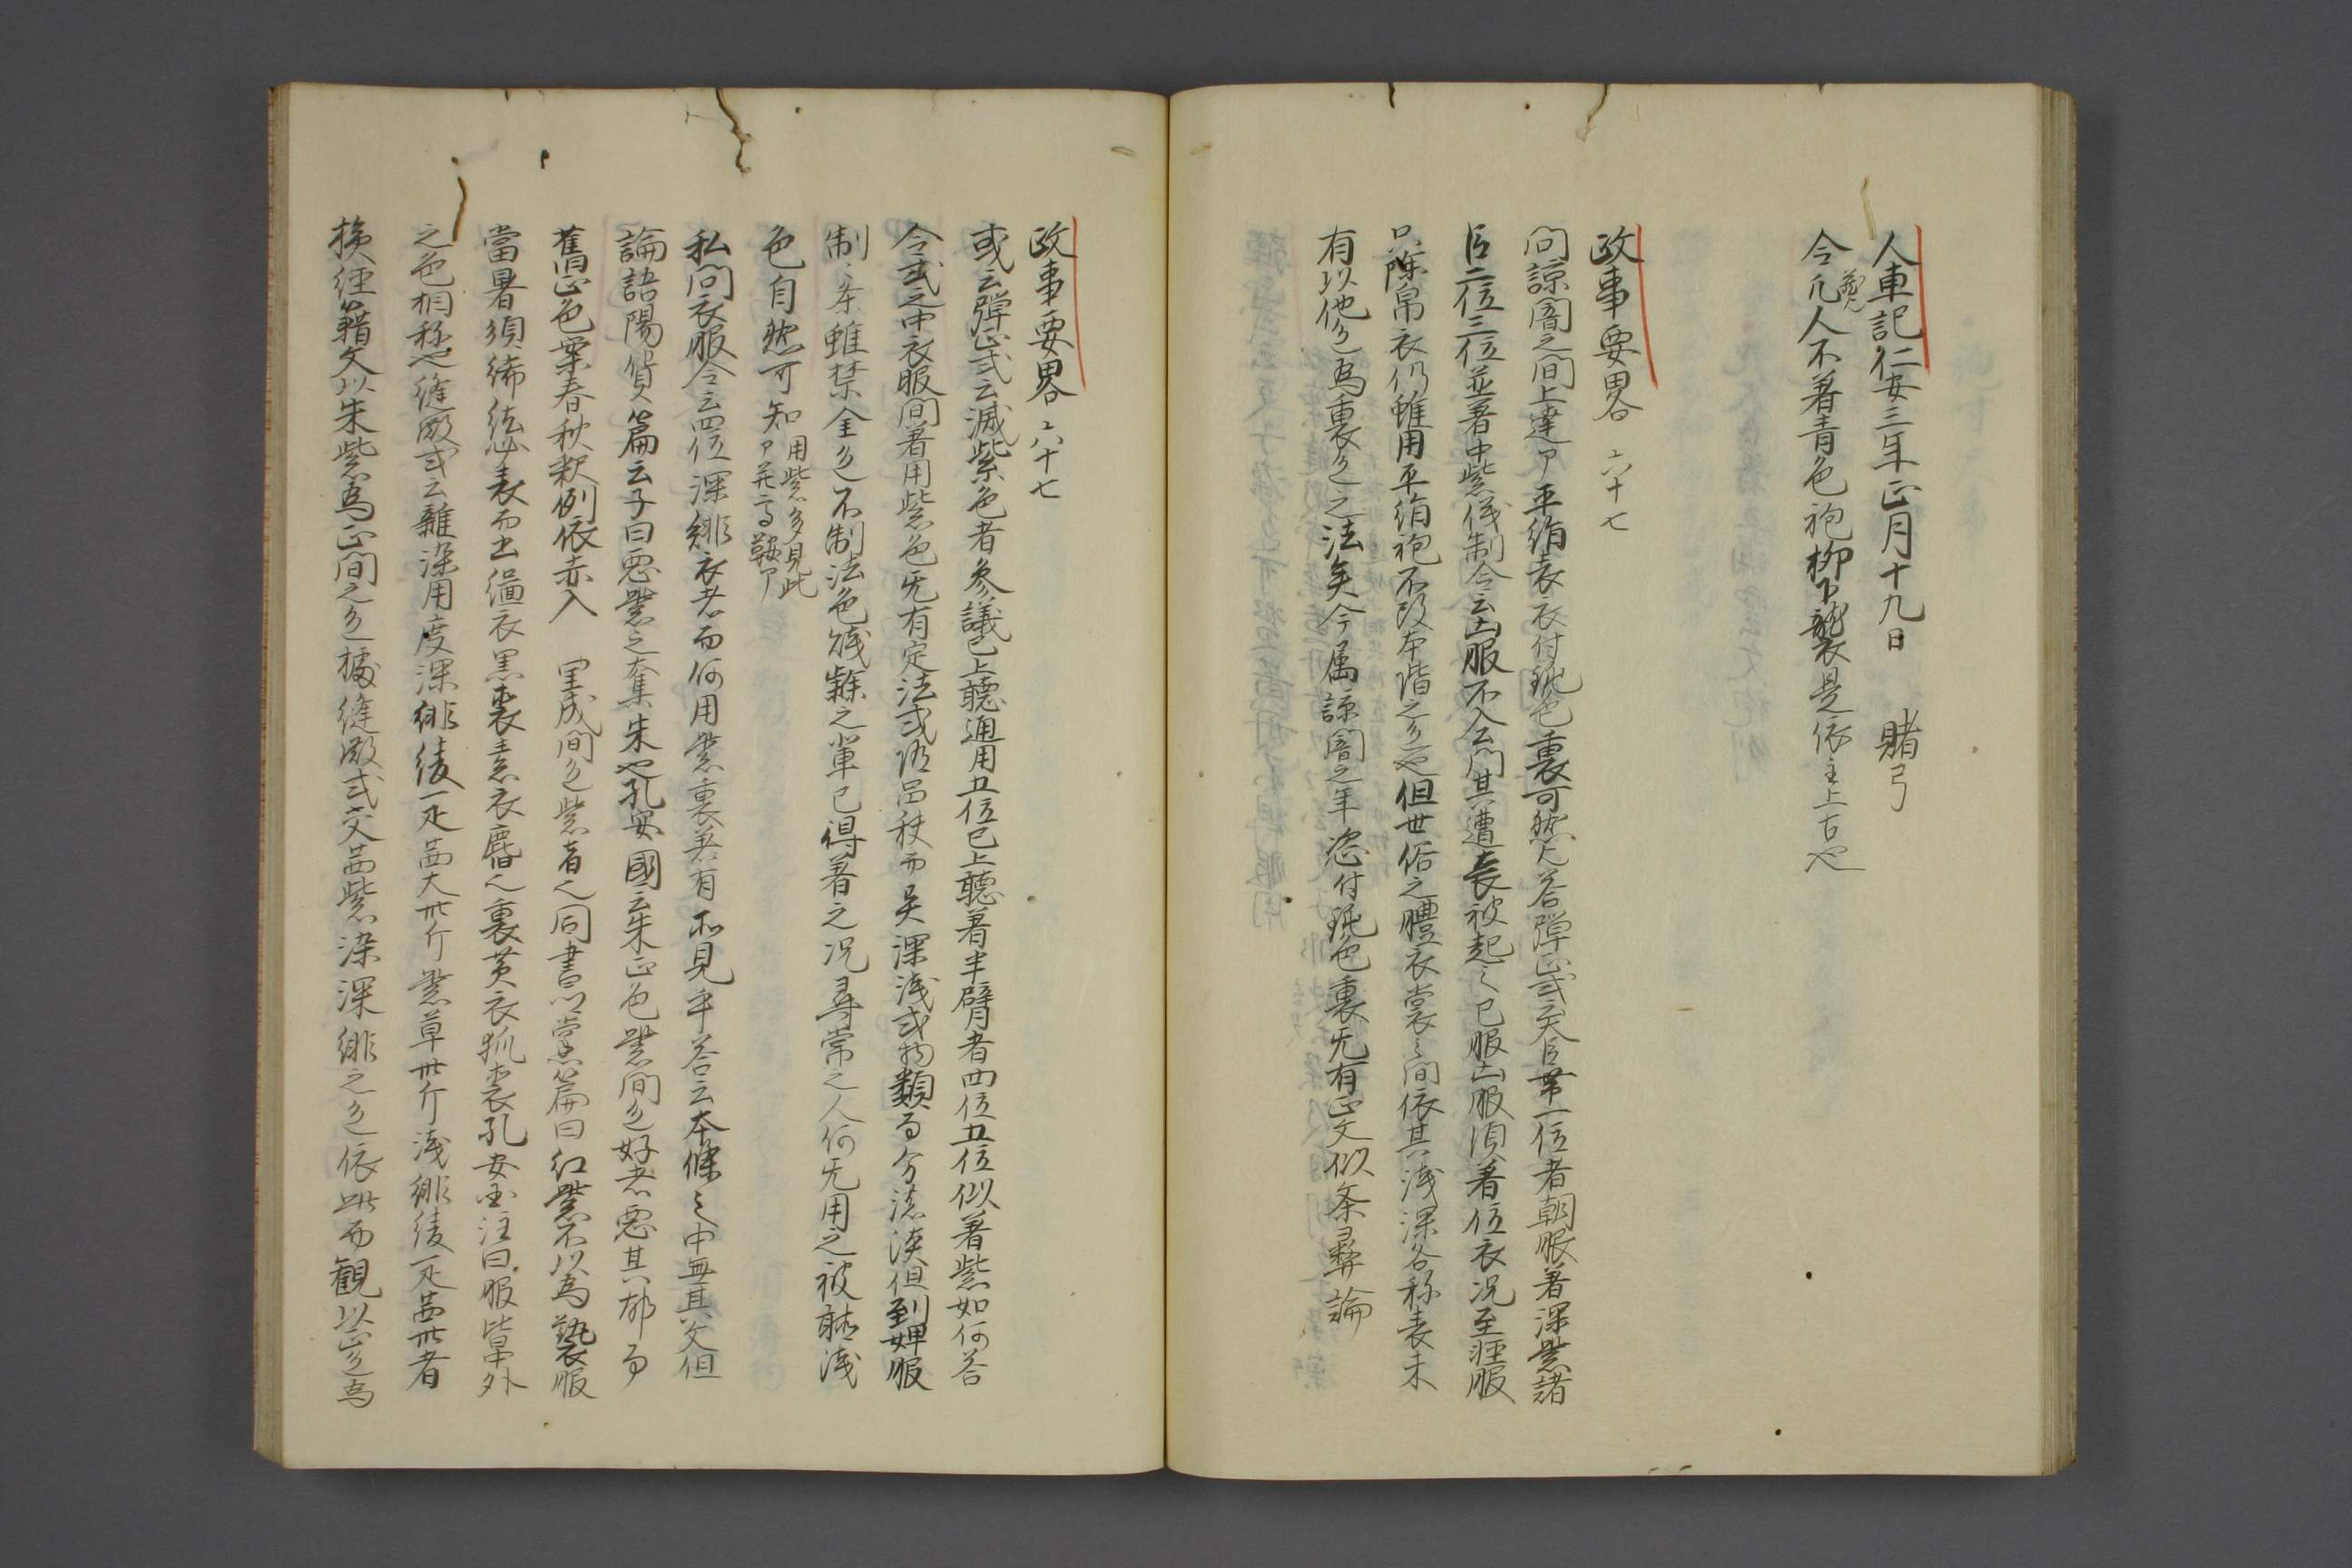 人車記仁安三年正月十九日　賭弓
今𠆢人不著青色袍柳下襲是依主上古也
政事要畧六十七
問諒闇之間上達マ平絹表衣付鈍色裏可然乎答弾正式云大臣帯一位者朝服著深紫諸
臣二位三位並著中紫儀制令云凶服不入公門其遭喪被起之已服凶服須著位衣況至軽服
只除帛衣仍雖用平絹袍不改本階之色也但世俗之體衣裳之間依其浅深各称表未
有以他色為裏色之法矣今属諒闇之年恣付鈍色裏无有正文似条彝論
政事要畧六十七
或云弾正式云滅紫色者参議已上聴通用五位已上聴著半臂者四位五位似著紫如何答
令式之中衣服間著用紫色无有定法或随品秩而異深浅或物類為分濃淡但到婢服
制之条雖禁全色不制法色賤隷之輩已得著之況尋常之人何无用之被聴浅
色自然可知用紫多見此
マ并云鞍マ
私問衣服令云四位深緋衣者而何用紫裏若有所見乎答云本條之中無其文但
論語陽貨篇云子曰悪紫之奪朱也孔安國云朱正色紫間色好者悪其邪為
舊正色栗春秋釈例依赤入　里成間色紫者之同書郷黨篇曰紅紫不以為褻服
當暑須絺綌必表而出緇衣羔裘素衣麑之裏黄衣狐裘孔安国注曰服皆中外
之色相称也縫殿式云雑染用度深緋綾一疋茜大卌斤紫草卅斤浅緋綾一疋茜卅者
検経籍文以朱紫為正間之色據縫殿式交茜紫染深緋之色依此而観以正色為